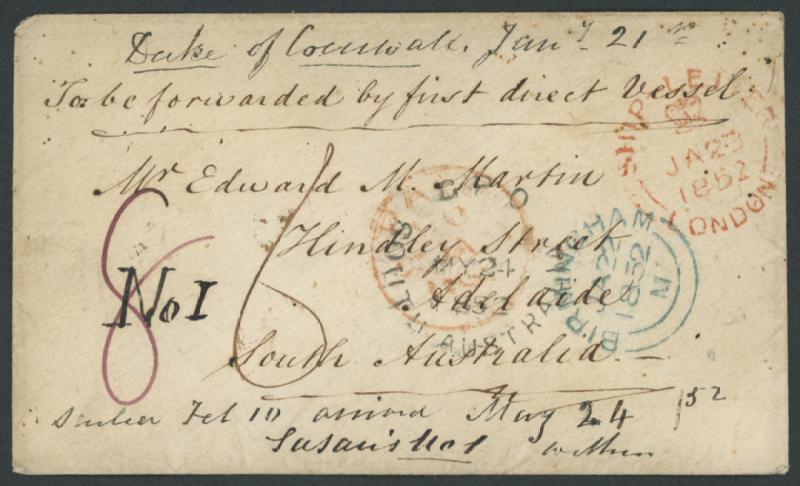 Duke of Cornwall. Jany 21st
To be forwarded by first direct Vessel.
SHIP LETTER
JA 23
1852
LONDON
Mr Edward M. Martin
Hindley Street
Adelaide
South Australia. —
8
No 1
6
G.P.O.
MY 24
SOUTH AUSTRALIA
BIRMINGHAM
JA 22
1852
N
Feb 10 arrived May 24 /52
Susan's No 1 within